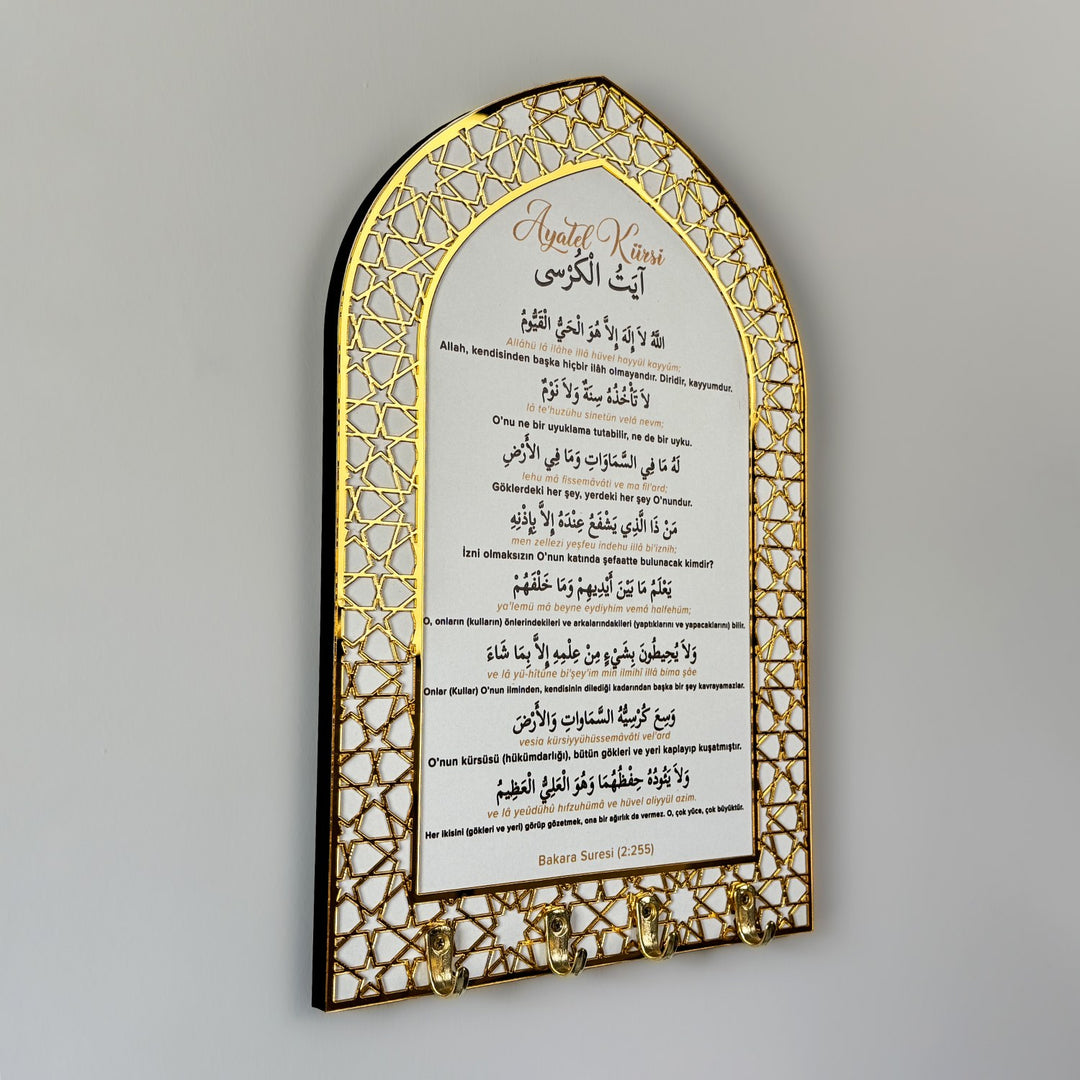 Ayatel Kürsi
آيَتُ الْكُرْسى
اللّهُ لاَ إِلَهَ إِلاَّ هُوَ الْحَيُّ الْقَيُّومُ
Allâhü lâ ilâhe illâ hüvel hayyül kayyûm;
Allah, kendisinden başka hiçbir ilâh olmayandır. Diridir, kayyumdur.
لاَ تَأْخُذُهُ سِنَةٌ وَلاَ نَوْمٌ
lâ te'huzühu sinetün velâ nevm;
O'nu ne bir uyuklama tutabilir, ne de bir uyku.
لَهُ مَا فِي السَّمَاوَاتِ وَمَا فِي الأَرْضِ
lehu mâ fissemâvâti ve ma fil'ard;
Göklerdeki her şey, yerdeki her şey O'nundur.
مَنْ ذَا الَّذِي يَشْفَعُ عِنْدَهُ إِلاَّ بِإِذْنِهِ
men zellezi yeşfeu indehu illâ bi'iznih;
İzni olmaksızın O'nun katında şefaatte bulunacak kimdir?
يَعْلَمُ مَا بَيْنَ أَيْدِيهِمْ وَمَا خَلْفَهُمْ
ya'lemü mâ beyne eydiyhim vemâ halfehüm;
O, onların (kulların) önlerindekileri ve arkalarındakileri (yaptıklarını ve yapacaklarını) bilir.
وَلاَ يُحِيطُونَ بِشَيْءٍ مِنْ عِلْمِهِ إِلاَّ بِمَا شَاءَ
ve lâ yü-hîtûne bi'şey'im min ilmihî illâ bima şâe
Onlar (Kullar) O'nun ilminden, kendisinin dilediği kadarından başka bir şey kavrayamazlar.
وَسِعَ كُرْسِيُّهُ السَّمَاواتِ وَالأَرْضَ
vesia kürsiyyühüssemâvâti vel'ard
O'nun kürsüsü (hükümdarlığı), bütün gökleri ve yeri kaplayıp kuşatmıştır.
وَلاَ يَئُودُهُ حِفْظُهُمَا وَهُوَ الْعَلِيُّ الْعَظِيمُ
ve lâ yeûdühû hıfzuhümâ ve hüvel aliyyül azim.
Her ikisini (gökleri ve yeri) görüp gözetmek, ona bir ağırlık da vermez. O, çok yüce, çok büyüktür.
Bakara Suresi (2:255)